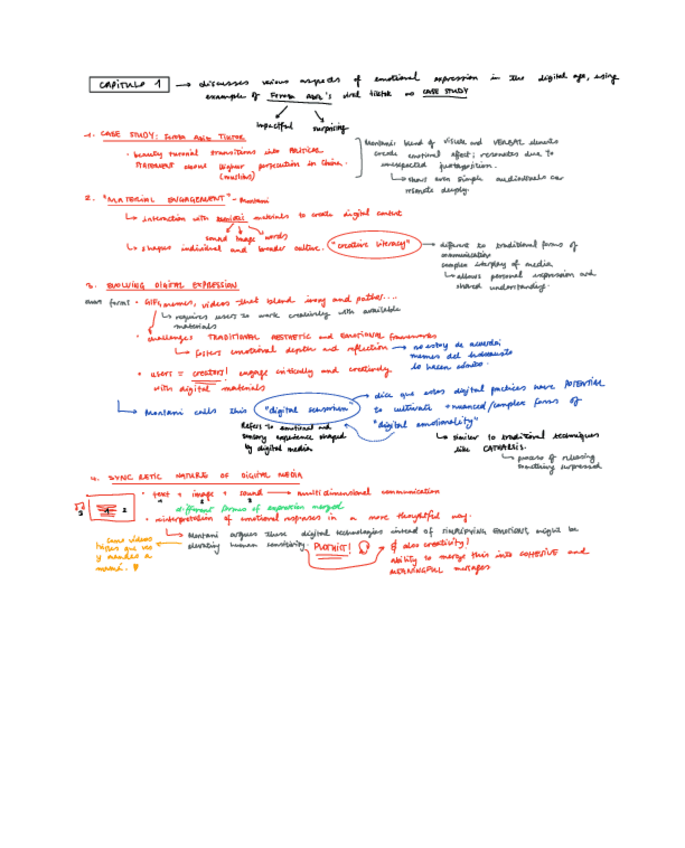 CAPITULO 1 → discusses various aspects of emotional expression in the digital age, using
example of Feroza Aziz's viral tiktok as CASE STUDY
impactful surprising
1. CASE STUDY: Feroza Aziz TikTok
• beauty tutorial transitions into POLITICAL
STATEMENT about Uighur persecution in China.
(muslims)
Montani: blend of visual and VERBAL elements
create emotional affect; resonates due to
unexpected juxtaposition.
↳ shows even simple audiovisuals can
resonate deeply.
2. "MATERIAL ENGAGEMENT" - Montani
↳ interaction with materials to create digital content
sound image words
↳ shapes individual and broader culture. "creative literacy"
→ different to traditional forms of
communication
complex interplay of media
↳ allows personal expression and
shared understanding.
3. EVOLVING DIGITAL EXPRESSION
short forms • GIFs, memes, videos that blend irony and pathos....
↳ requires users to work creatively with available
materials
• challenges TRADITIONAL AESTHETIC and EMOTIONAL frameworks
↳ fosters emotional depth and reflection → no estoy de acuerdo:
memes del holocausto
lo hacen cómico.
• users = creators! engage critically and creatively
with digital materials
↳ Montani calls this "digital sensorium"
→ dice que estas digital practices have POTENTIAL
to cultivate + nuanced/complex forms of
"digital emotionality"
Refers to emotional and
sensory experience shaped
by digital media
↳ similar to traditional techniques
like CATHARSIS.
↳ process of releasing
something supressed
4. SYNCRETIC NATURE OF DIGITAL MEDIA
• text + image + sound → multidimensional communication
1 2 3
different forms of expression merged
3 1 2
• reinterpretation of emotional responses in a more thoughtful way.
↳ Montani argues these digital technologies instead of SIMPLIFYING EMOTIONS, might be
elevating human sensitivity. PLOT TWIST!
& also creativity!
ability to merge this into COHESIVE and
MEANINGFUL messages
como videos
que veo
y mandas a
mamá.